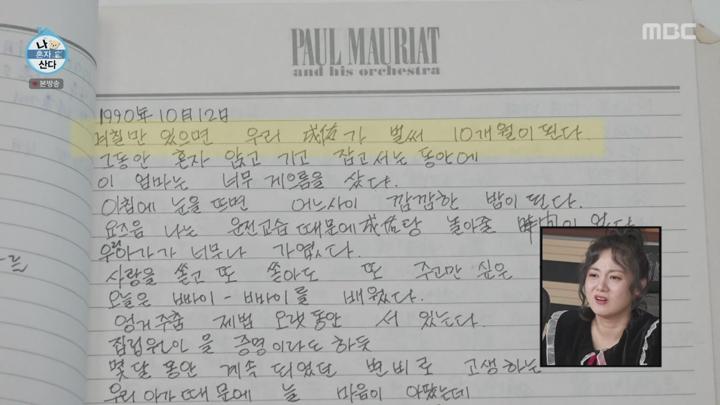 나 혼자 산다
본방송
MBC
PAUL MAURIAT
and his orchestra
1990年 10月 12日
며칠만 있으면 우리 成佑가 벌써 10개월이 된다.
그동안 혼자 앉고 기고 잡고서는 동안에
이 엄마는 너무 게으름을 샀다.
아침에 눈을 뜨면 어느사이 깜깜한 밤이 된다.
요즈음 나는 운전교습 때문에 成佑랑 놀아줄 時間이 없다
우리아가가 너무나 가엾다.
사랑을 쏟고 또 쏟아도 또 주고만 싶은
오늘은 빠이-빠바이를 배웠다.
엉거주춤 제법 오랫동안 서 있는다.
집념원 을 증명이라도 하듯
몇달 동안 계속 되었던 변비로 고생하는
우리 아가 때문에 늘 마음이 아팠는데